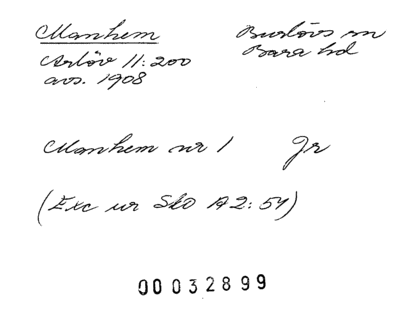 Manhem
Arlöv 11:200
avs. 1908
Burlövs sn
Bara hd
Manhem nr 1 Jr
(Exc ur SkO A2:54)
00032899